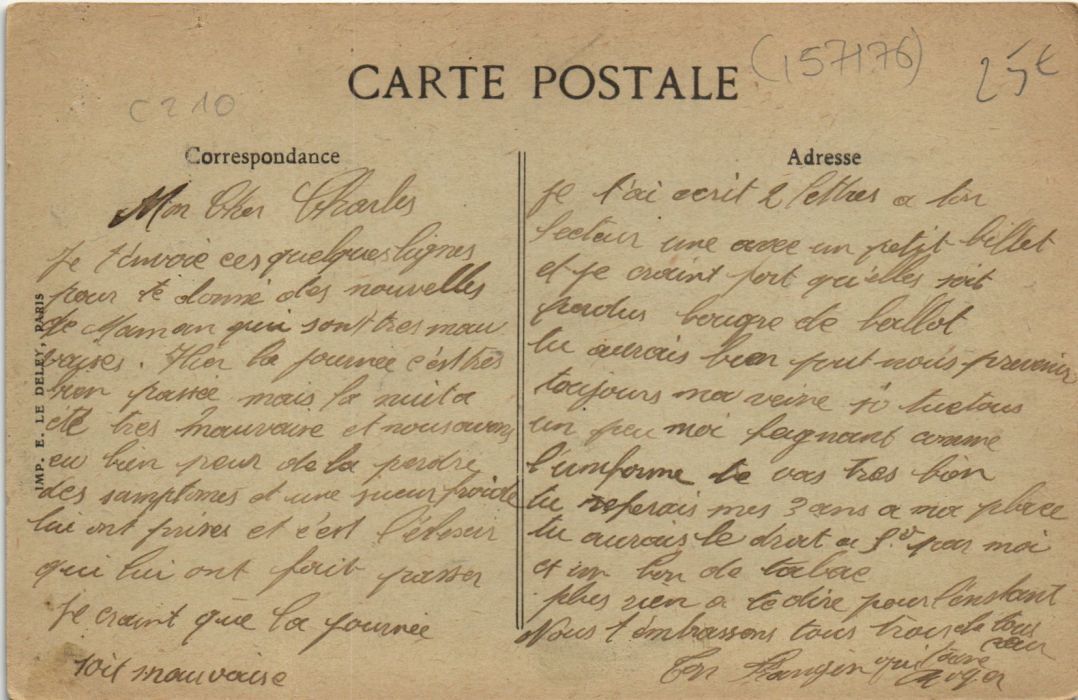 CARTE POSTALE
(157176)
25€
C210
Correspondance
Mon Cher Charles
Je t'envoie ces quelques lignes
pour te donné des nouvelles
de Maman qui sont tres mau
vaises. Hier la journée c'est tres
bien passée mais la nuit a
été tres mauvaise et nous avons
eu bien peur de la perdre
des samptomes et une sueur froide
lui ont prises et c'est l'
qui lui ont fait passer
Je craint que la journée
soit mauvaise
Adresse
Je t'ai ecrit 2 lettres a ton
secteur une avec un petit billet
et je craint fort qu'elles soit
perdus bougre de ballot
tu aurais bien put nous prevenir
toujours ma veine
un peu moi feignant comme
l'uniforme te vas tres bien
tu referais mes 3 ans a ma place
tu aurais le droit a par moi
et un bon de tabac
plus rien a te dire pour l'instant
Nous t'embrassons tous trois de tous
coeur
Ton Frangin qui t'aime
Roger
IMP. E. LE DELEY, PARIS